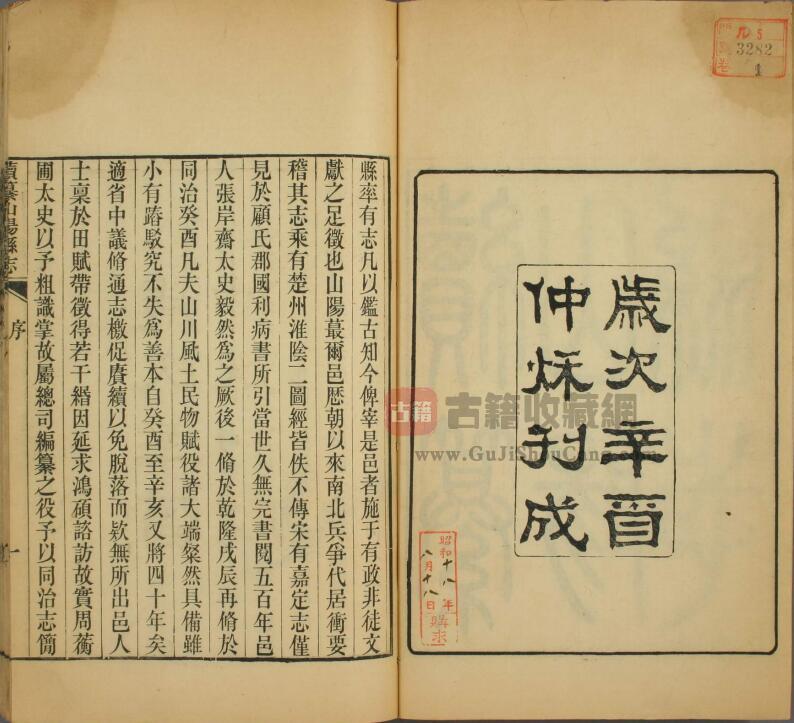 歲次辛酉
仲秌刊成
縣率有志凡以鑑古知今俾宰是邑者施于有政非徒文
獻之足徵也山陽蕞爾邑歷朝以來南北兵爭代居衝要
稽其志乘有楚州淮陰二圖經皆佚不傳宋有嘉定志僅
見於顧氏郡國利病書所引當世久無完書閱五百年邑
人張岸齋太史毅然爲之厥後一脩於乾隆戊辰再脩於
同治癸酉凡夫山川風土民物賦役諸大端粲然具備雖
小有踳駁究不失爲善本自癸酉至辛亥又將四十年矣
適省中議脩通志檄促賡續以免脫落而欵無所出邑人
士稟於田賦帶徵得若干緡因延求鴻碩諮訪故實周蘅
圃太史以予粗識掌故屬總司編纂之役予以同治志簡
續纂山陽縣志
序
一
3282
1
昭和十八年
八月十八日
購求
古籍
古籍收藏網
www.GuJiShouCang.com